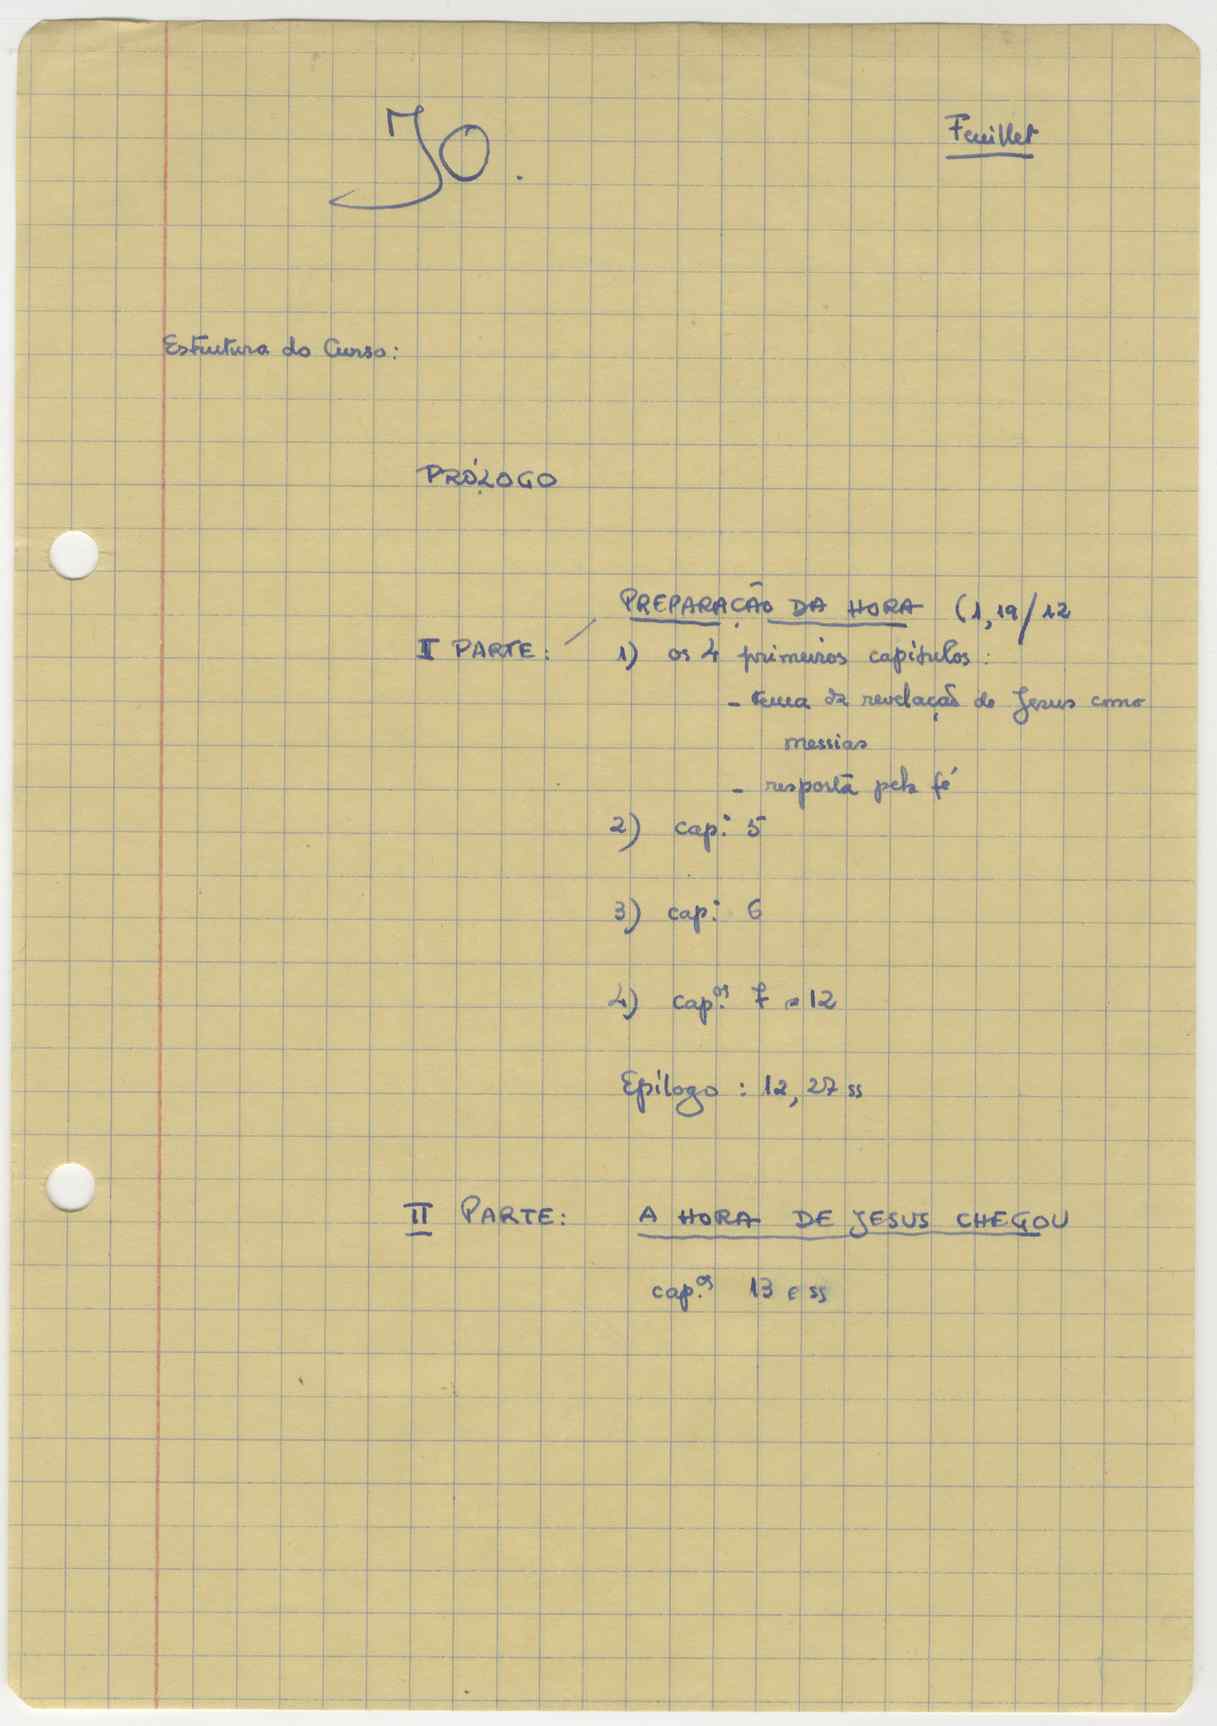 JO.
Feuillet
Estrutura do Curso:
PRÓLOGO
PREPARAÇÃO DA HORA (1,19/12
I PARTE:
1) os 4 primeiros capítulos:
- tema da revelação de Jesus como
messias
- resposta pela fé
2) cap.º 5
3) cap.º 6
4) cap.os 7 a 12
Epílogo : 12, 27 ss
II PARTE: A HORA DE JESUS CHEGOU
cap.os 13 e ss